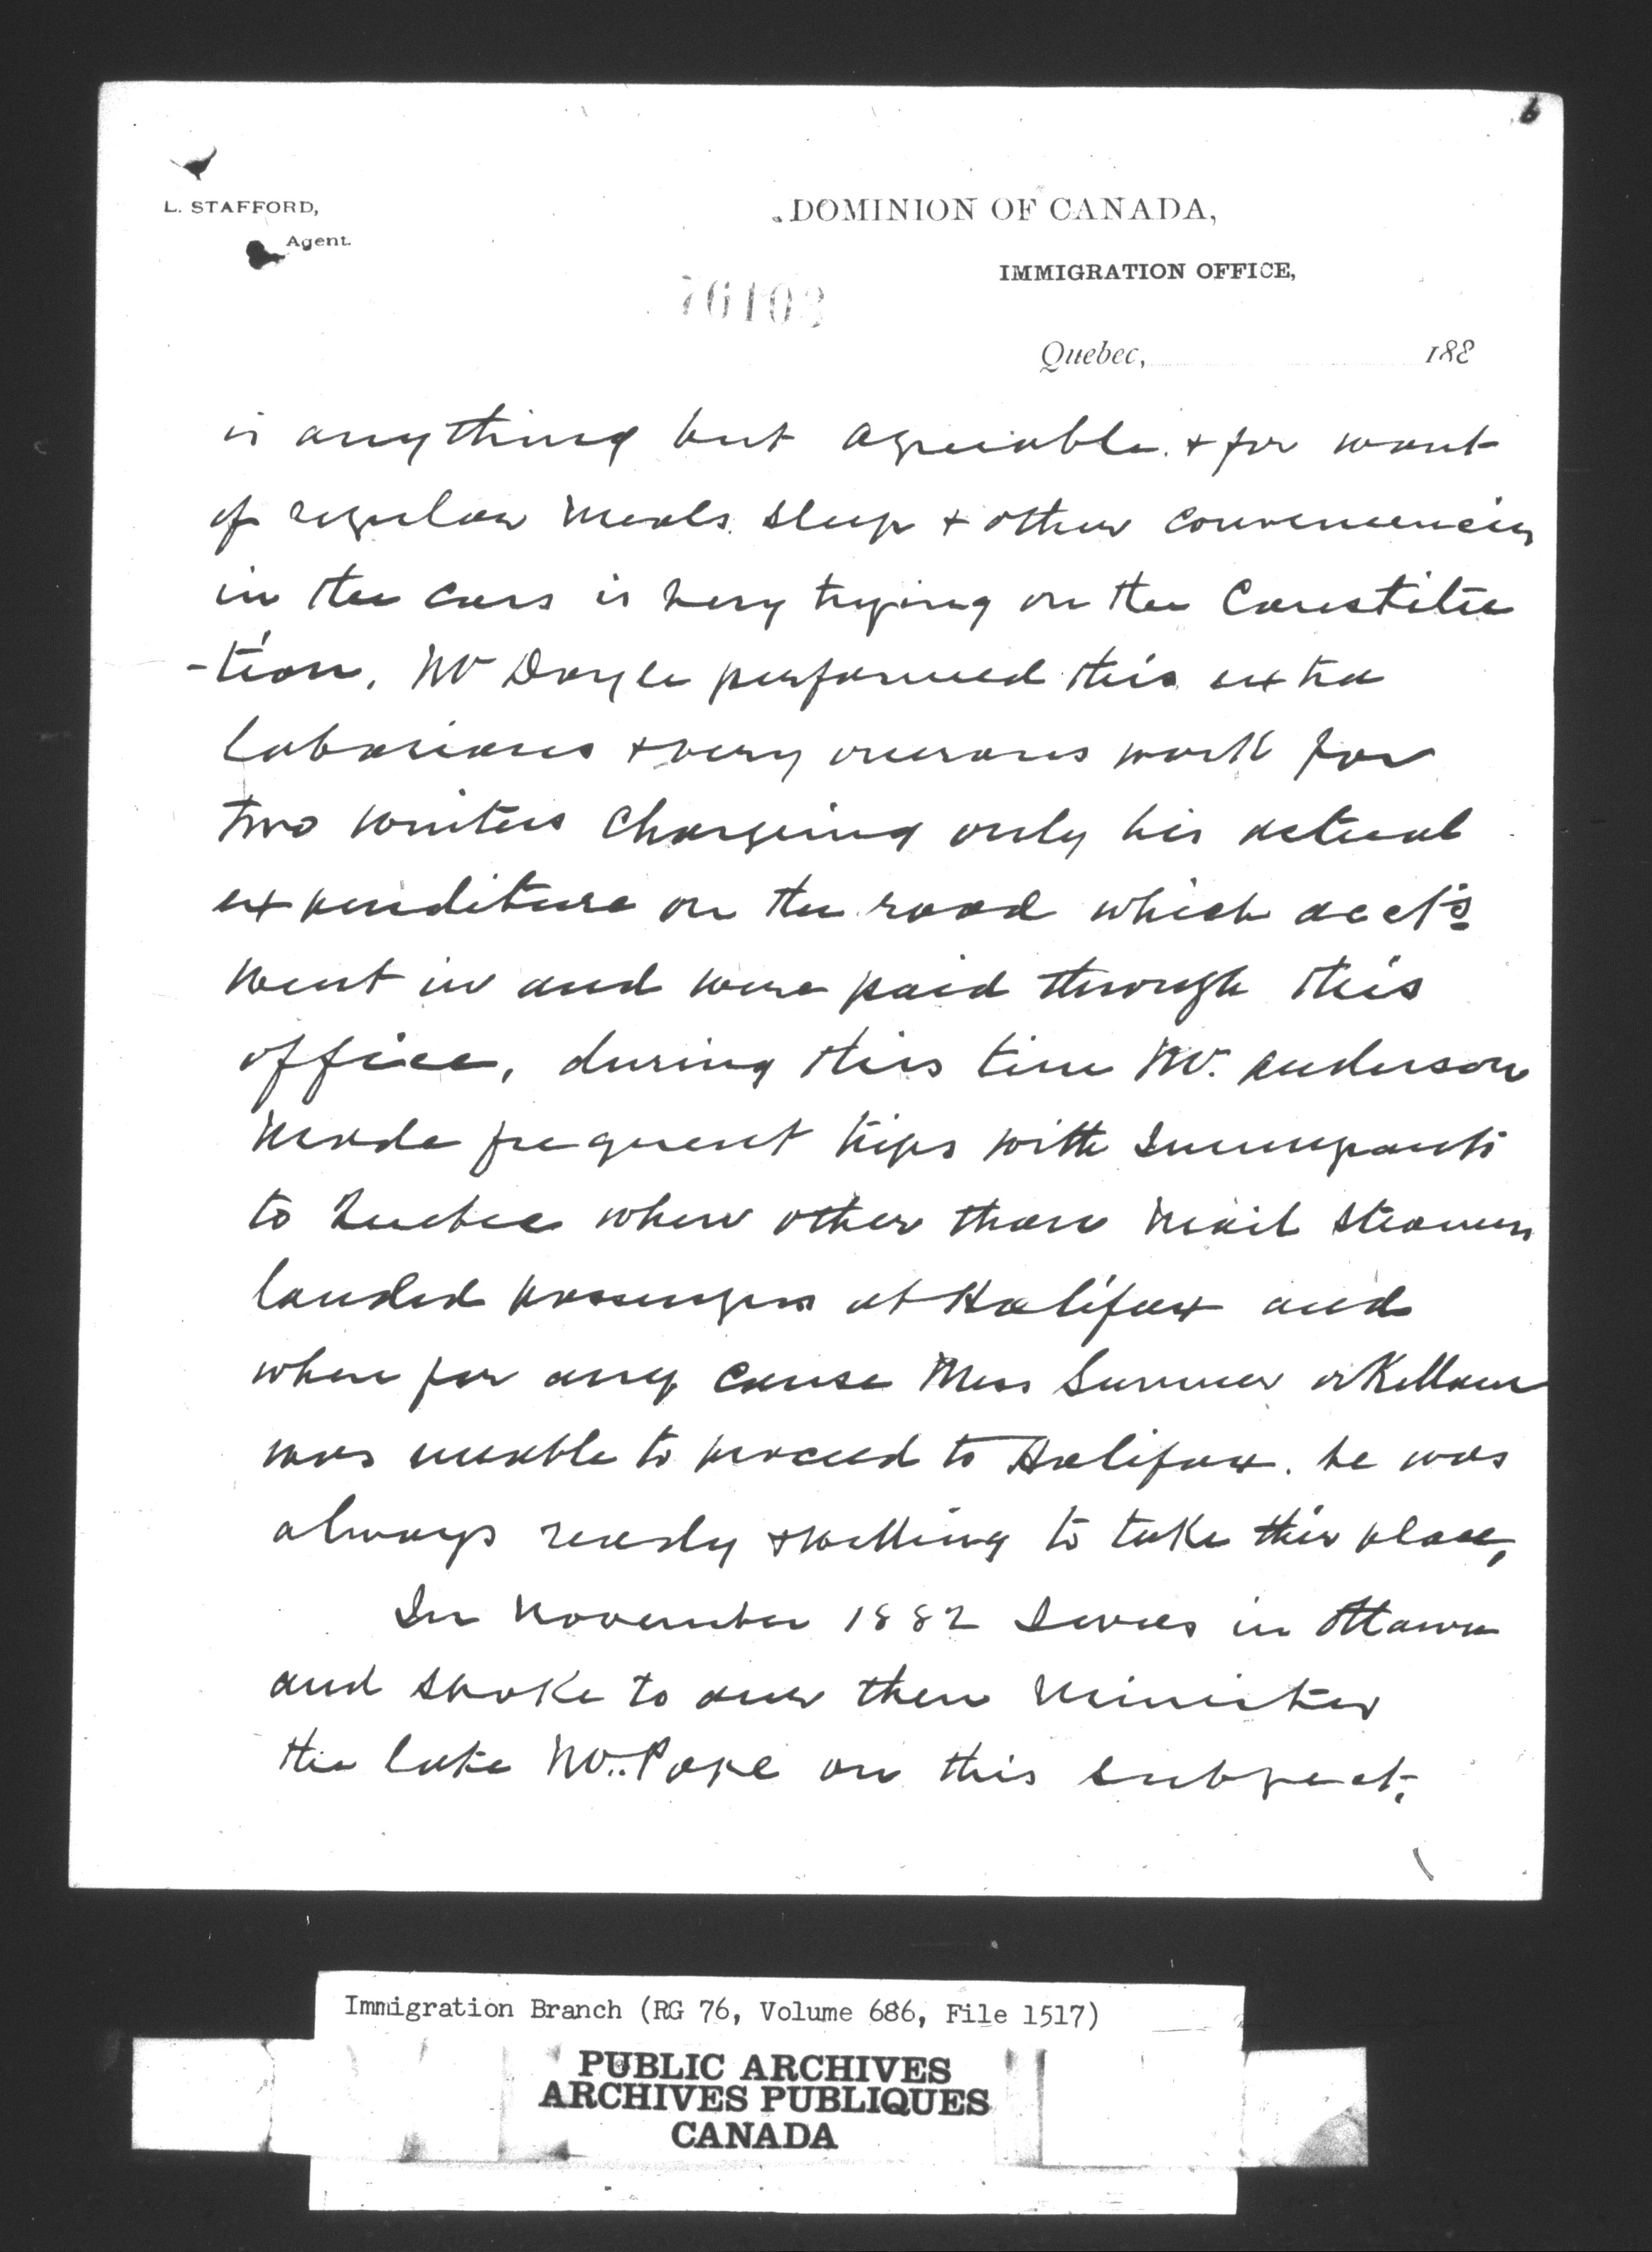 6
L. STAFFORD,
Agent.
DOMINION OF CANADA,
IMMIGRATION OFFICE,
76103
Quebec, 188
is anything but agreeable. & for want
of regular meals. sleep & other conveniencies
in the cars is very trying on the Constitu
-tion, Mr Doyle performed this extra
laborious & very onerous work for
two winters charging only his actual
expenditure on the road which acct's
went in and were paid through this
office, during this time Mr. Anderson
made frequent trips with Immigrants
to Quebec when other than Mail Steamers
landed passengers at Halifax and
when for any cause Mess Sumner or Kellam
was unable to proceed to Halifax. he was
always ready & willing to take their place,
In November 1882 I was in Ottawa
and spoke to our then Minister
the late Mr. Pope on this subject.
Immigration Branch (RG 76, Volume 686, File 1517)
PUBLIC ARCHIVES
ARCHIVES PUBLIQUES
CANADA